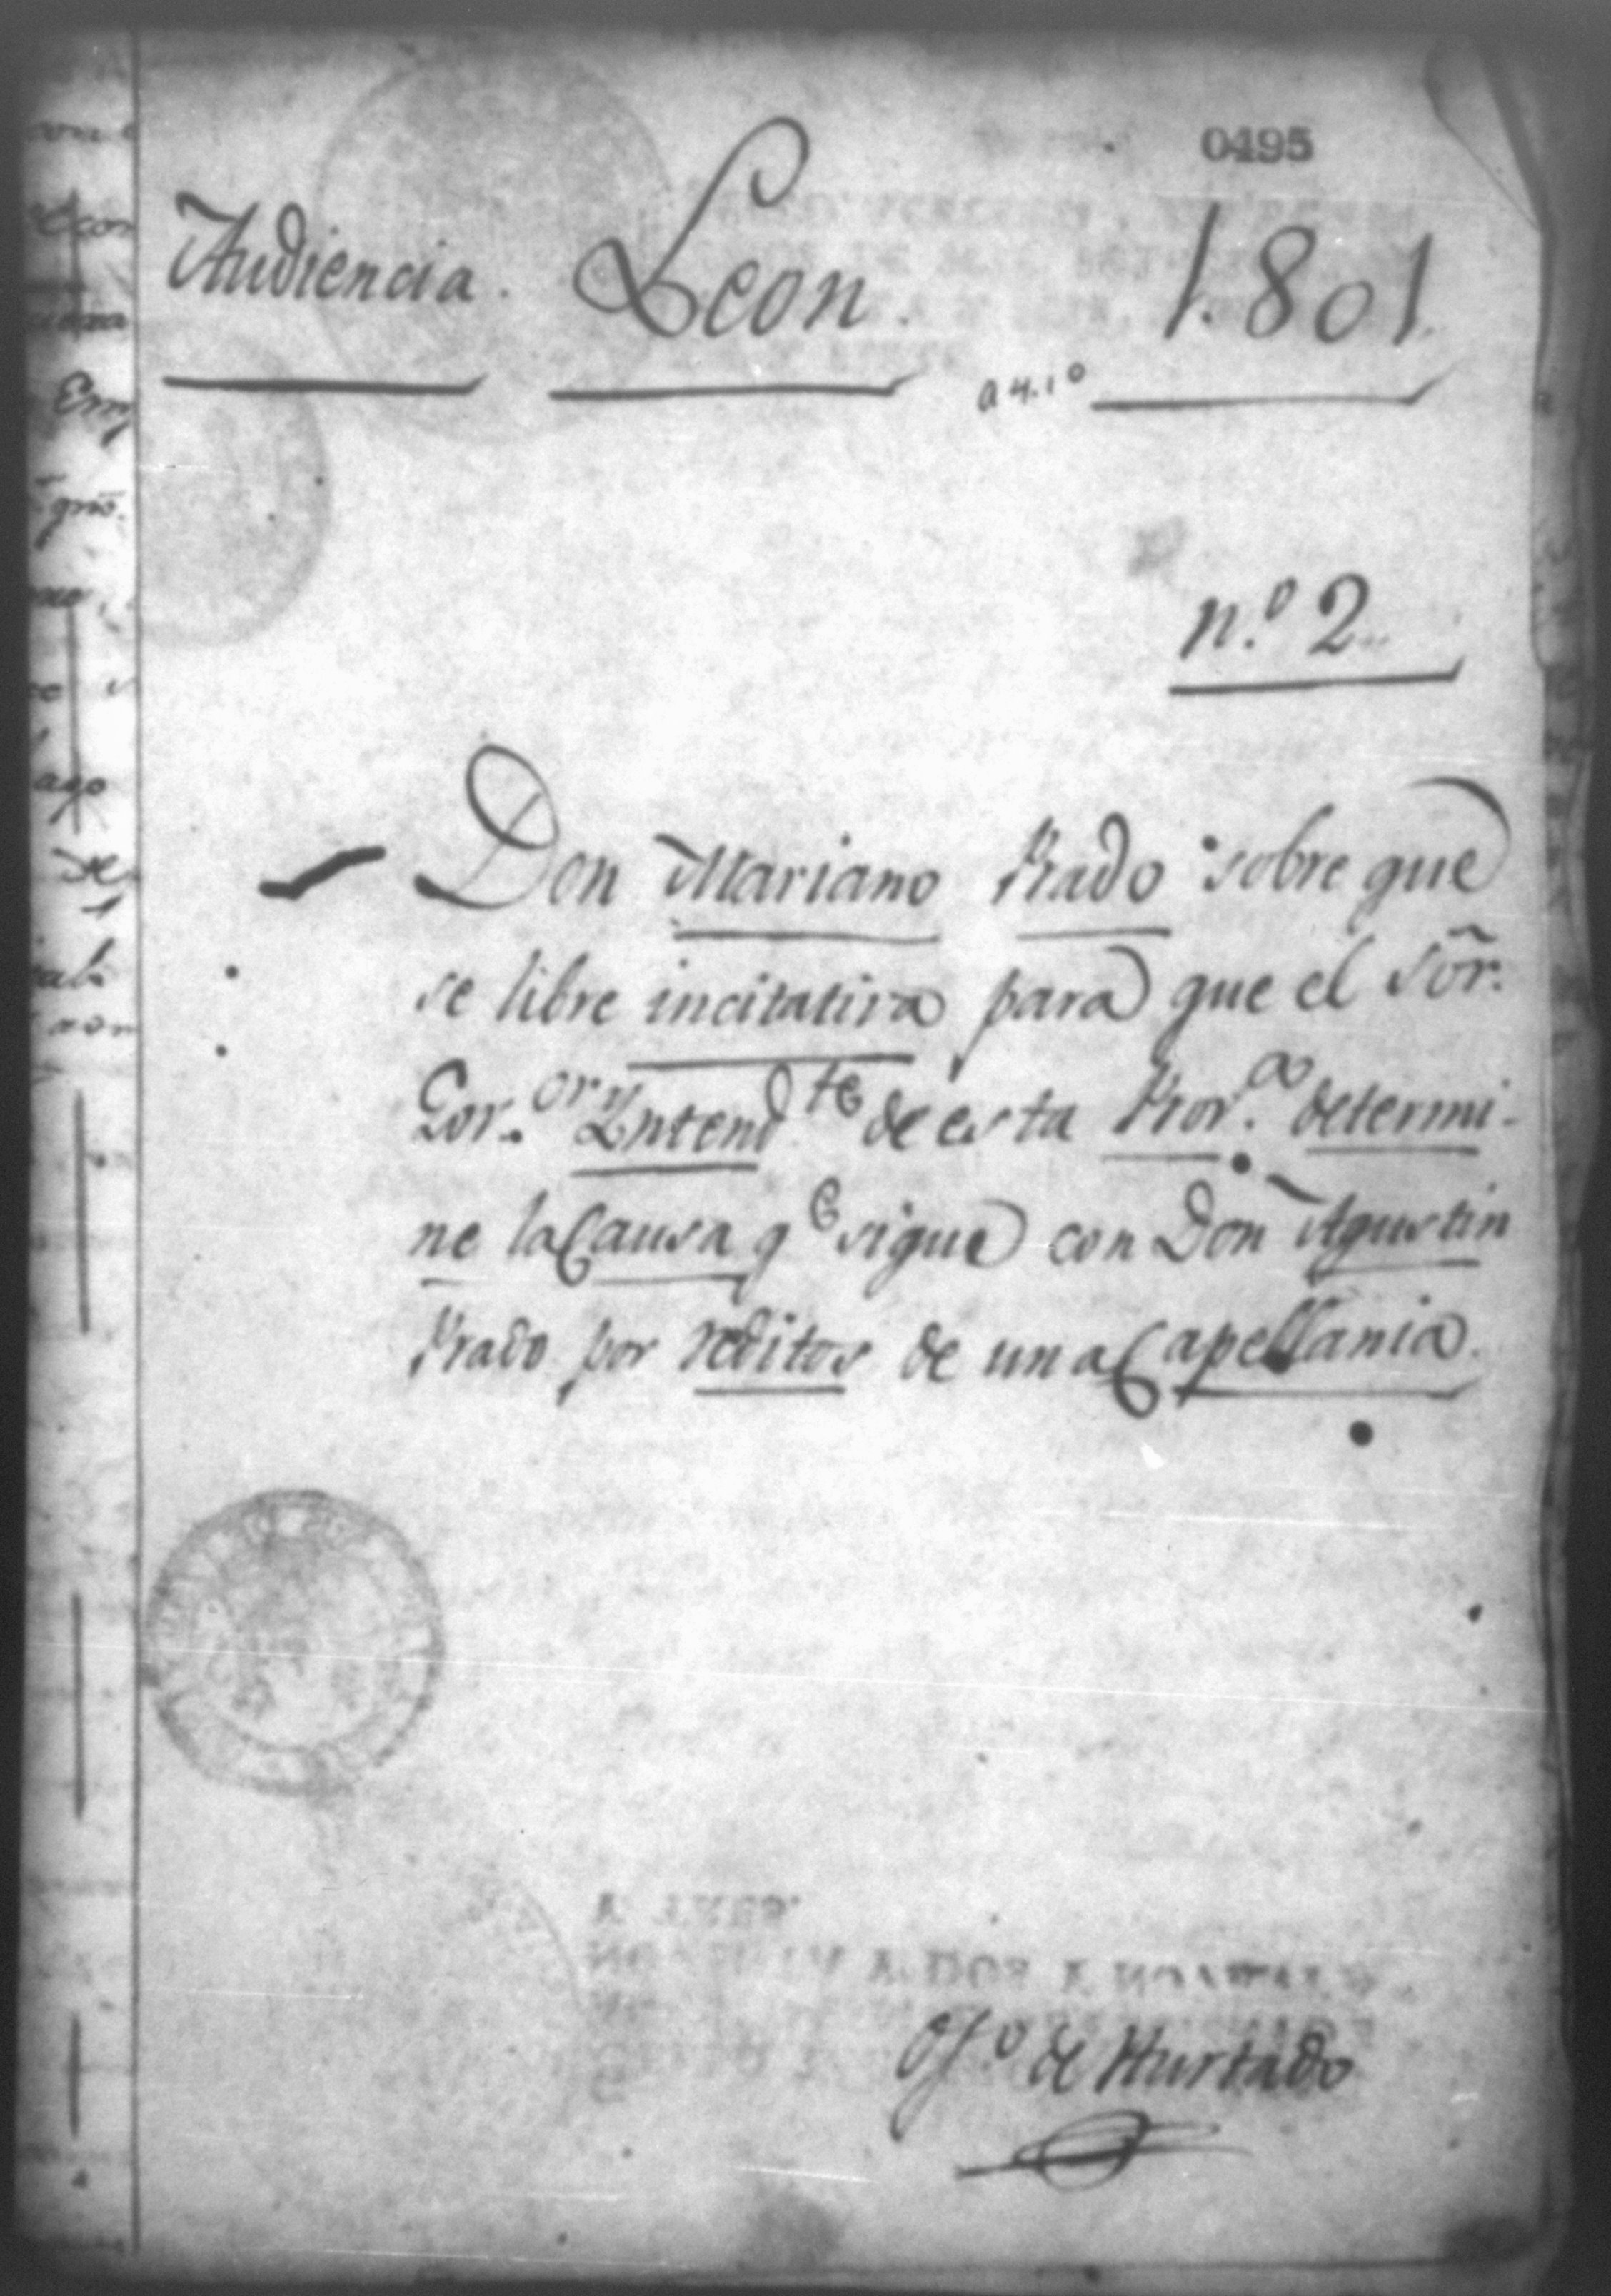 0495
Audiencia. Leon. 1.801
a 4.1º
n.º 2
Don Mariano Prado sobre que
se libre incitativa para que el Sõr.
Gov.or y Intend.te de esta Prov.a determi-
ne la Causa q.e sigue con Don Agustin
Prado por reditos de una Capellania.
Ofº de Hurtado